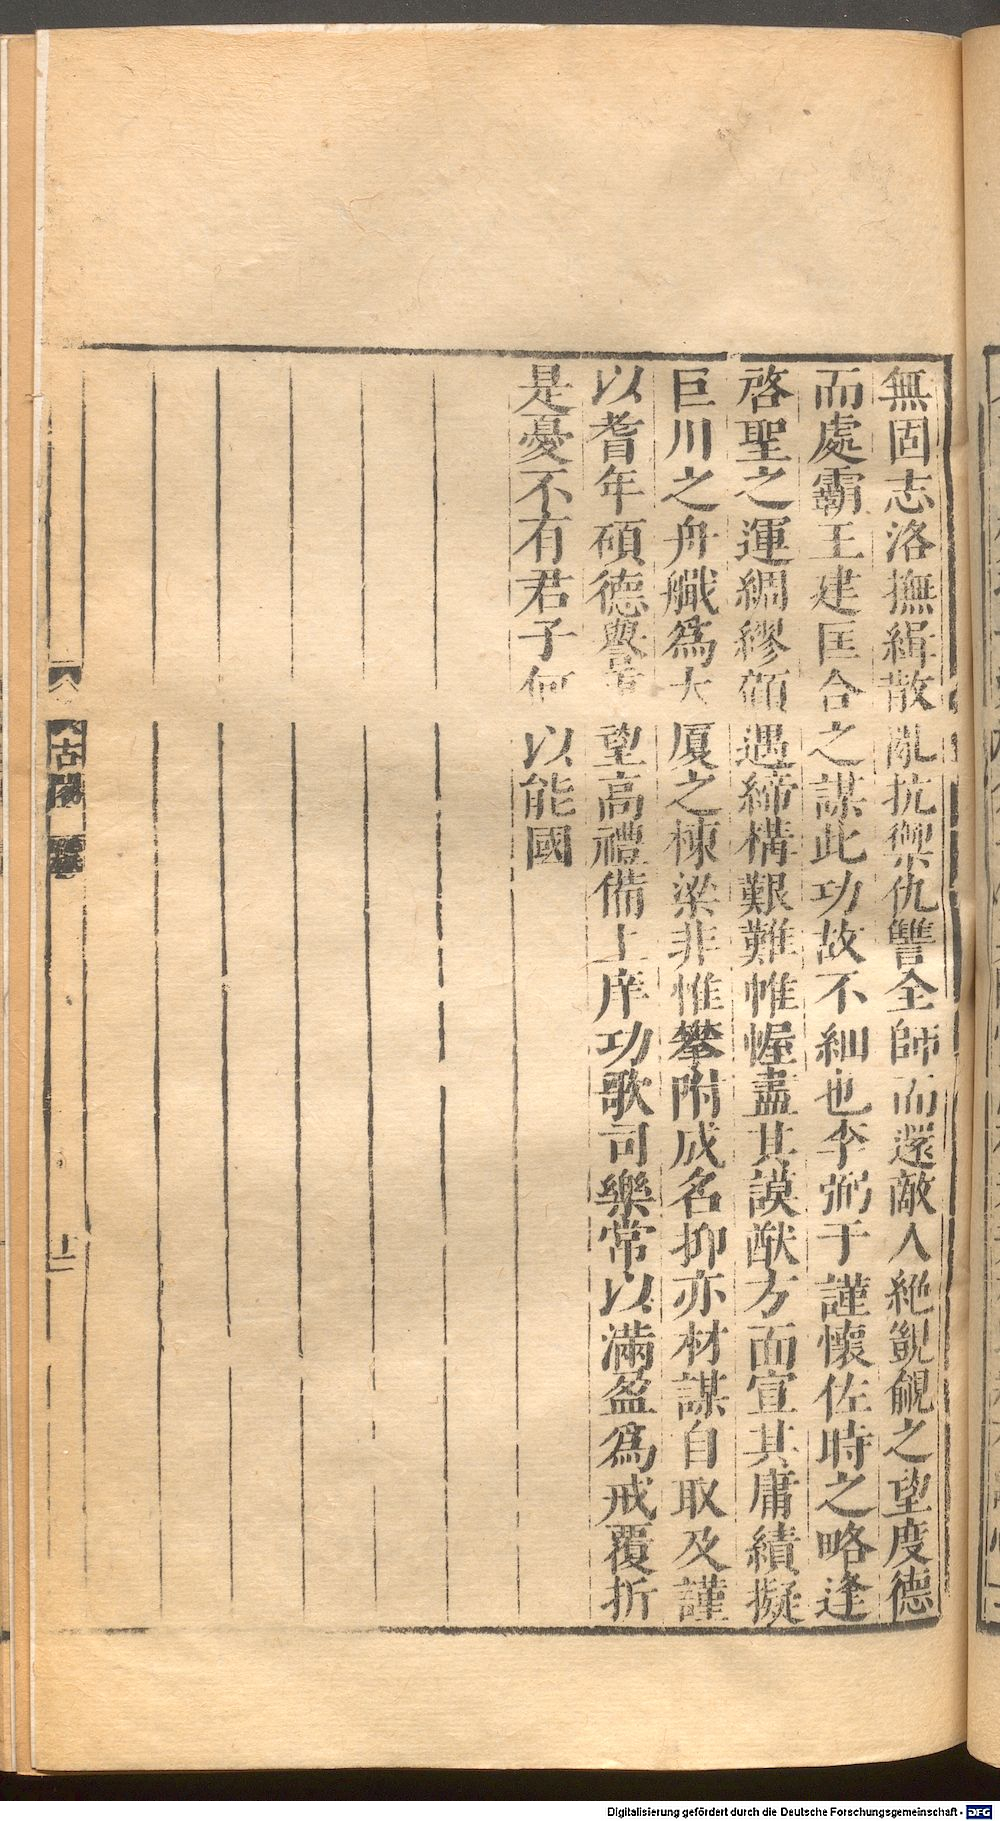 無固志洛撫緝散亂抗禦仇讐全師而還敵人絶覬覦之望度德
而處霸王建匡合之謀此功故不細也李弼于謹懷佐時之略逢
啓聖之運綢繆顧遇締構艱難帷幄盡其謨猷方面宣其庸績擬
巨川之舟艥為大厦之棟梁非惟攀附成名抑亦材謀自取及謹
以耆年碩德譽望高禮備上庠功歌司樂常以滿盈爲戒覆折
是憂不有君子何以能國
古閣
十一
Digitalisierung gefördert durch die Deutsche Forschungsgemeinschaft - DFG